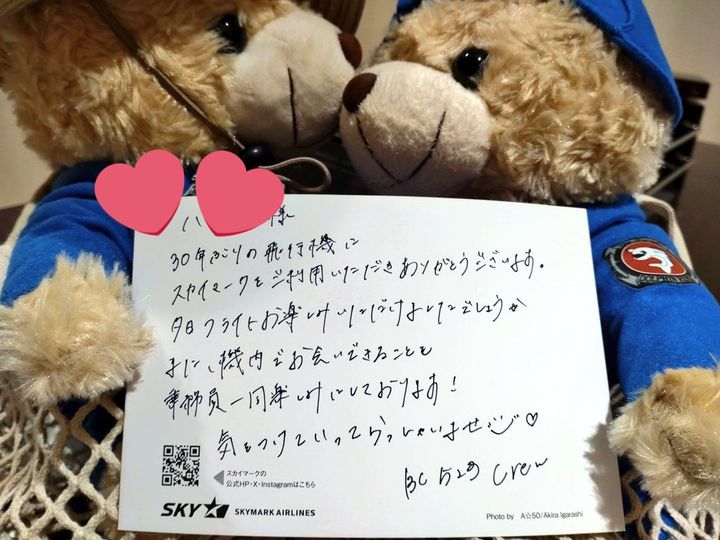 様
30年ぶりの飛行機に
スカイマークをご利用いただきありがとうございます。
今日フライトお楽しみいただけましたでしょうか
また、機内でお会いできることも
乗務員一同楽しみにしております!
気をつけていってらっしゃいませ♡
BC 529 Crew
スカイマークの
公式HP・X・Instagramはこちら
SKY SKYMARK AIRLINES
Photo by A☆50/Akira Igarashi